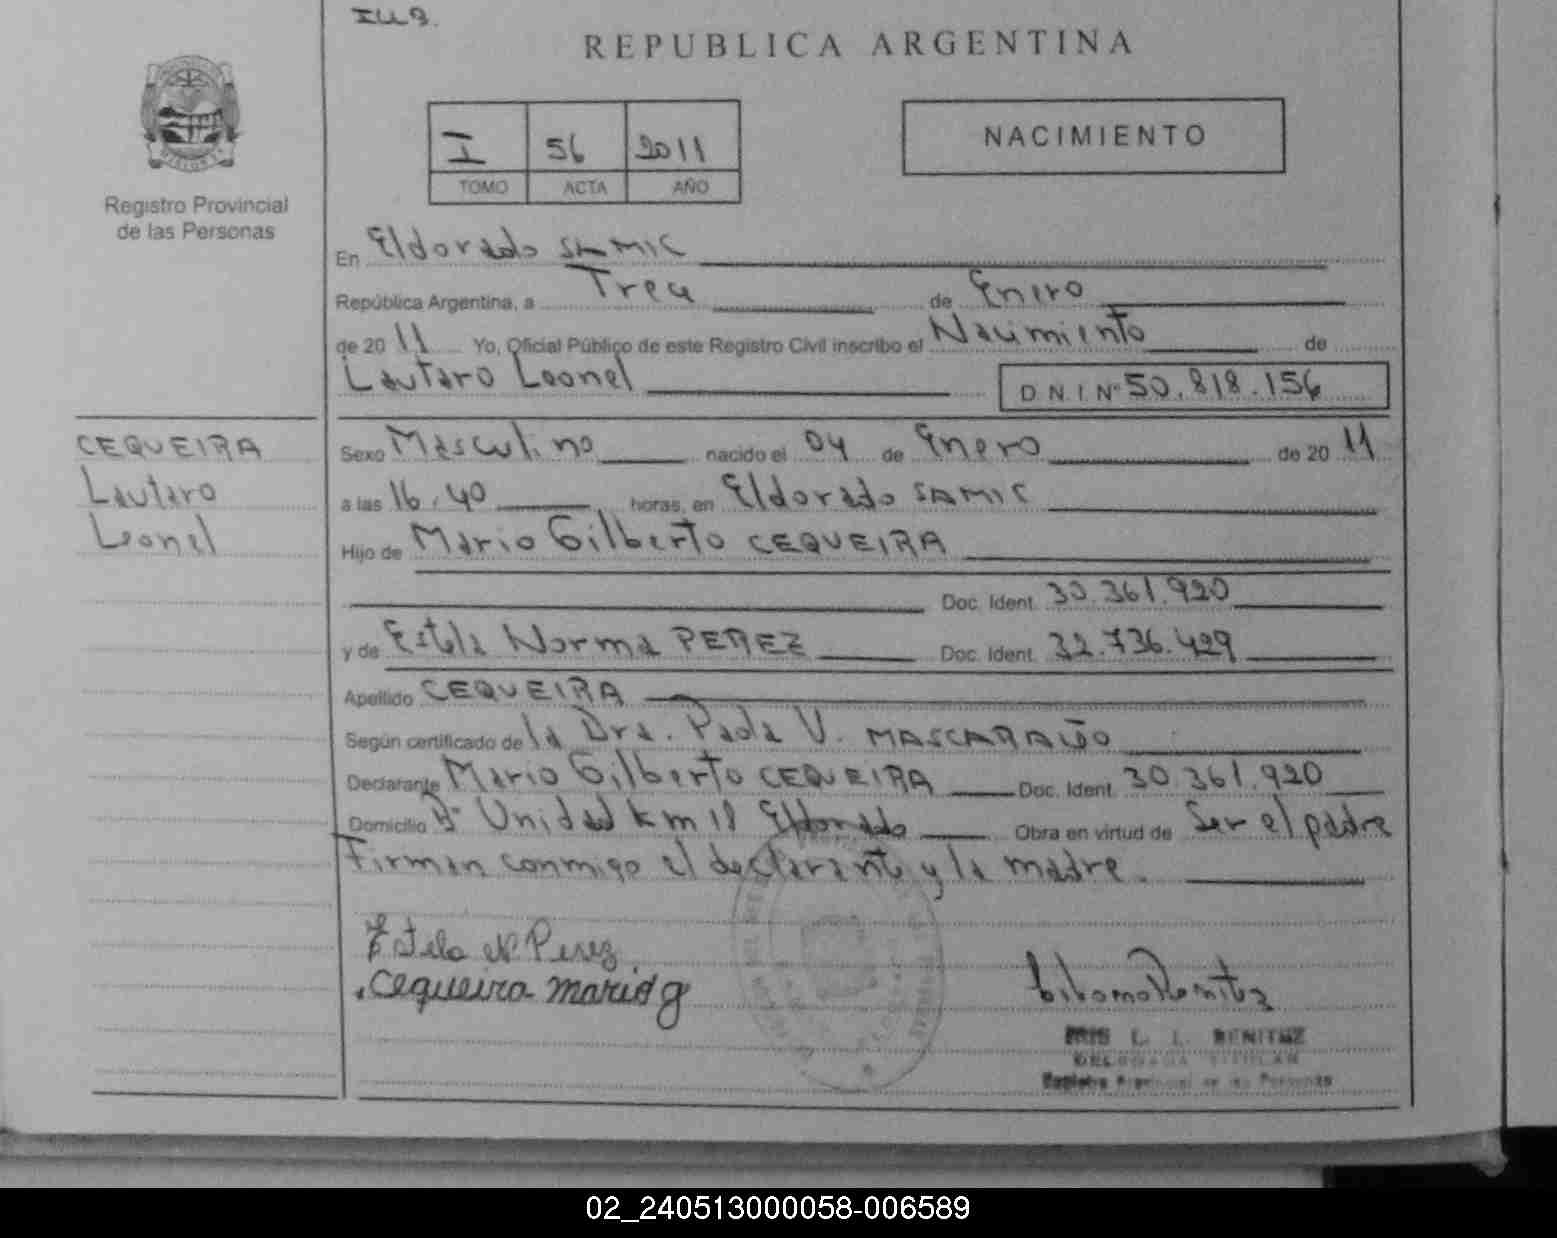 REPUBLICA ARGENTINA
I 56 2011
TOMO ACTA AÑO
NACIMIENTO
Registro Provincial
de las Personas
En Eldorado SAMIC
República Argentina, a de Enero
de 2011 Yo, Oficial Público de este Registro Civil inscribo el Nacimiento de
Lautaro Leonel D.N.I. Nº 50.818.156
CEQUEIRA
Lautaro
Leonel
Sexo Masculino nacido el 04 de Enero de 2011
a las 16.40 horas, en Eldorado SAMIC
Hijo de Mario Gilberto CEQUEIRA
Doc. Ident. 30.361.920
y de Estela Norma PEREZ Doc. Ident. 32.736.429
Apellido CEQUEIRA
Según certificado de la Dra. Paola V. MASCARAÑO
Declarante Mario Gilberto CEQUEIRA Doc. Ident. 30.361.920
Domicilio Bº Unidad km 18 Eldorado Obra en virtud de Ser el padre
Firman conmigo el declarante y la madre.
Estela N Perez
Cequeira mario g
L. I. BENITEZ
DELEGADA TITULAR
Registro Provincial de las Personas
02_240513000058-006589